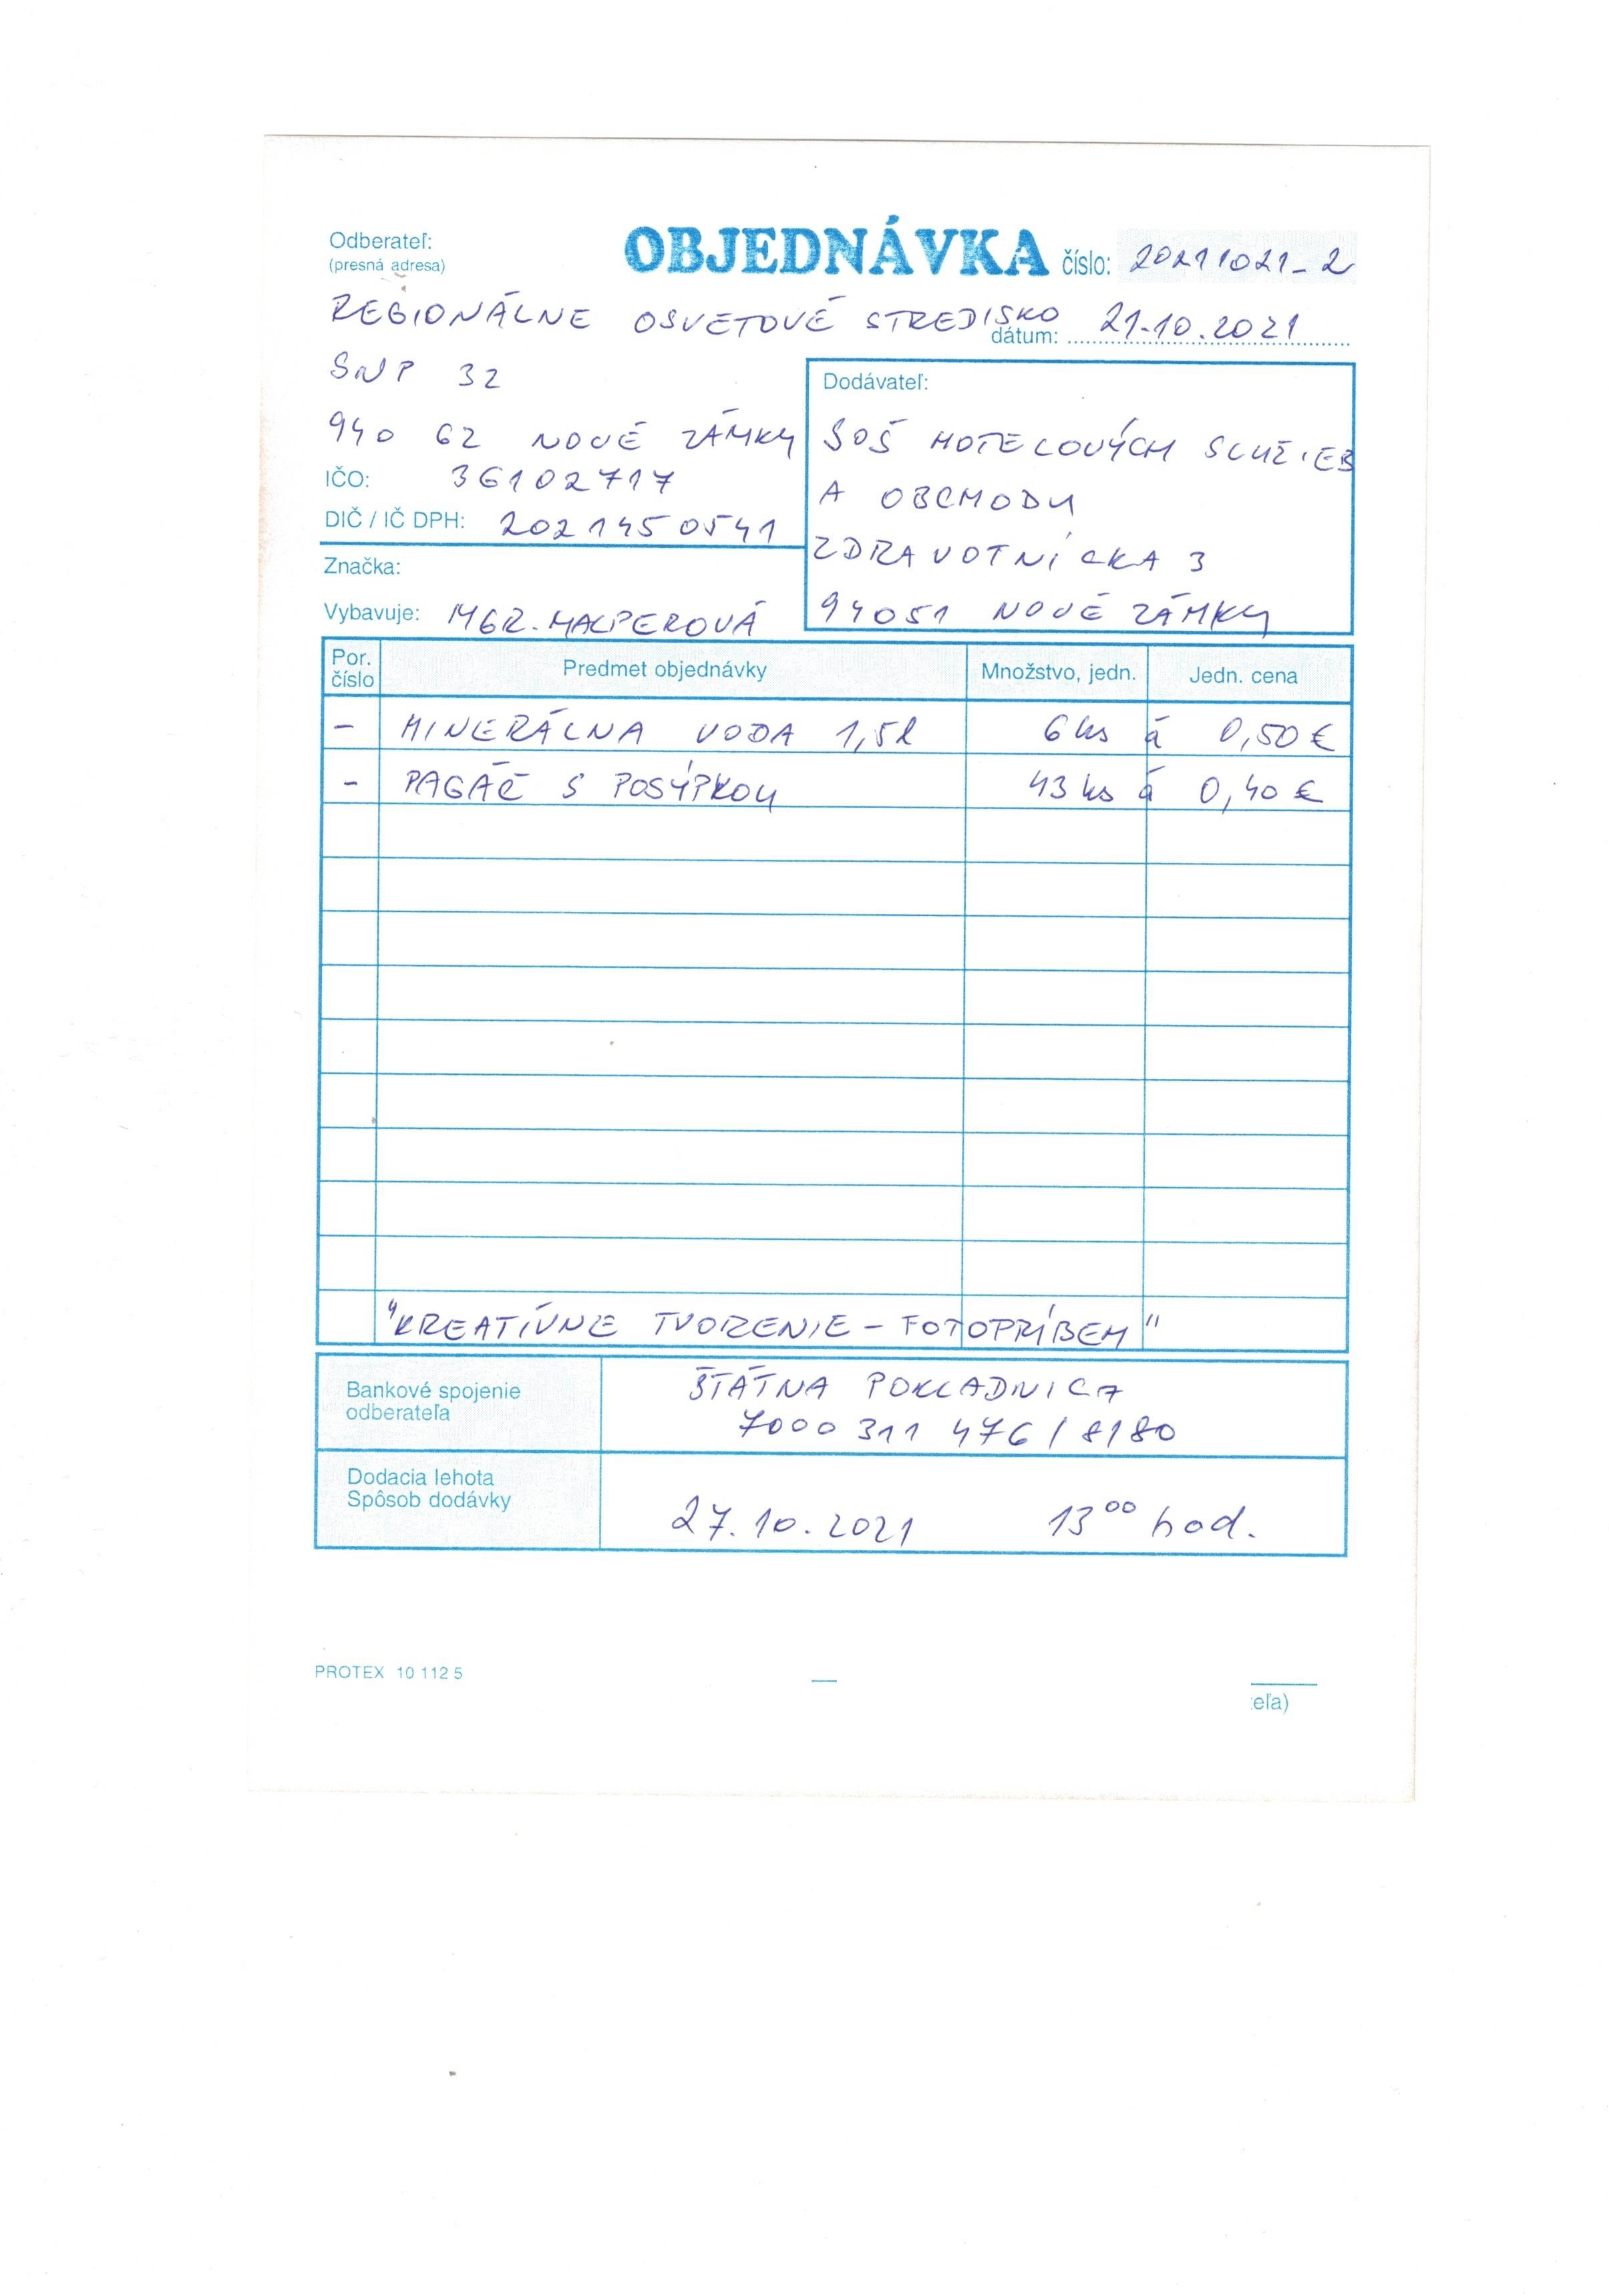 Odberateľ:
(presná adresa)
OBJEDNÁVKA číslo: 20211021-2
REGIONÁLNE OSVETOVÉ STREDISKO
dátum: 21.10.2021
SNP 32
940 62 NOVÉ ZÁMKY
IČO: 36102717
DIČ / IČ DPH: 2021450541
Značka:
Vybavuje: MGR. HALPEROVÁ
Dodávateľ:
SOŠ HOTELOVÝCH SLUŽIEB
A OBCHODU
ZDRAVOTNÍCKA 3
94051 NOVÉ ZÁMKY
Por. číslo Predmet objednávky Množstvo, jedn. Jedn. cena
- MINERÁLNA VODA 1,5l 6 ks á 0,50 €
- PAGÁČ S POSÝPKOU 43 ks á 0,40 €
"KREATÍVNE TVORENIE - FOTOPRÍBEH"
Bankové spojenie
odberateľa
ŠTÁTNA POKLADNICA
7000 311 476 / 8180
Dodacia lehota
Spôsob dodávky
27.10.2021 13⁰⁰ hod.
PROTEX 10 112 5
eľa)